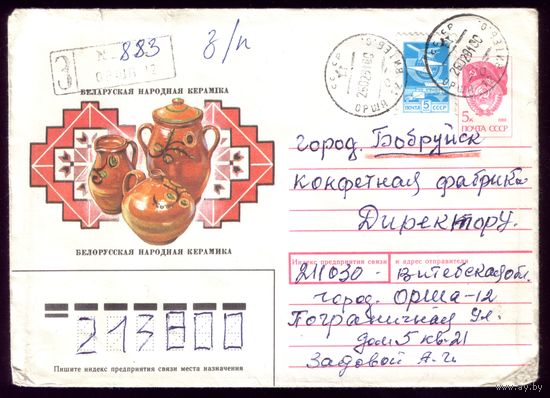 З № 883
з/п
ОРША-12
СССР
ОРША
СССР
ОРША
5
ПОЧТА СССР
5к
ПОЧТА СССР
БЕЛАРУСКАЯ НАРОДНАЯ КЕРАМІКА
БЕЛОРУССКАЯ НАРОДНАЯ КЕРАМИКА
город. Бобруйск
конфетная фабрика
Директору.
Индекс предприятия связи и адрес отправителя
211030 - Витебская обл.
город. Орша-12
Пограничная Ул.
дом 5 кв. 21
Задовой А-г.
213800
Пишите индекс предприятия связи места назначения
ay.by